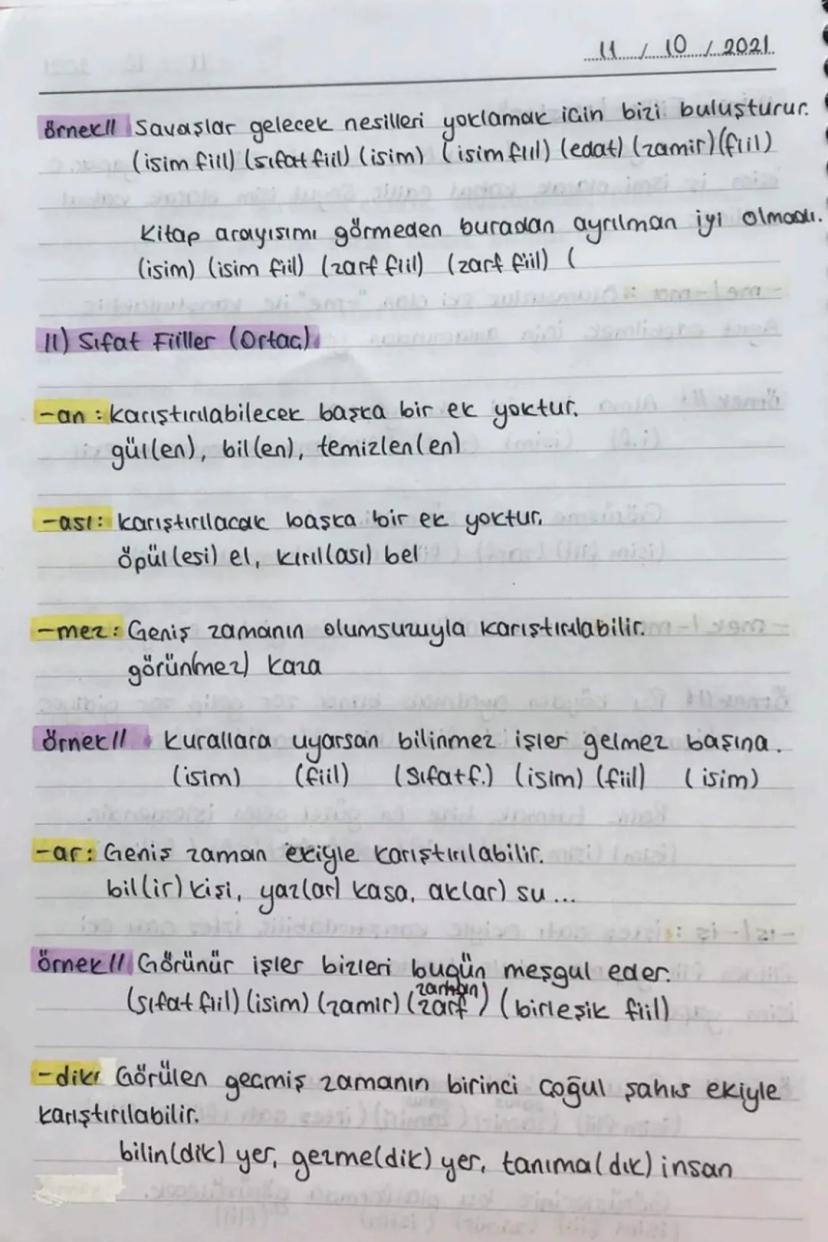 11 / 10 / 2021
örnek// Savaşlar gelecek nesilleri yoklamak için bizi buluşturur.
(isim fiil) (sıfat fiil) (isim) (isim fiil) (edat) (zamir) (fiil)
Kitap arayışımı görmeden buradan ayrılman iyi olmadı.
(isim) (isim fiil) (zarf fiil) (zarf fiil) (
II) Sıfat Fiiller (Ortaç)
-an : karıştırılabilecek başka bir ek yoktur.
gül(en), bil(en), temizlen(en)
-ası: karıştırılacak başka bir ek yoktur.
öpül(esi) el, kırıl(ası) bel
-mez: Geniş zamanın olumsuzuyla karıştırılabilir.
görün(mez) kaza
örnek// kurallara uyarsan bilinmez işler gelmez başına.
(isim) (fiil) (sıfat f.) (isim) (fiil) (isim)
-ar: Geniş zaman ekiyle karıştırılabilir.
bil(ir) kişi, yaz(ar) kasa, ak(ar) su...
örnek// Görünür işler bizleri bugün meşgul eder.
(sıfat fiil) (isim) (zamir) (zarf) (birleşik fiil)
-dik: Görülen geçmiş zamanın birinci çoğul şahıs ekiyle
karıştırılabilir.
bilin(dik) yer, gezme(dik) yer, tanıma(dık) insan